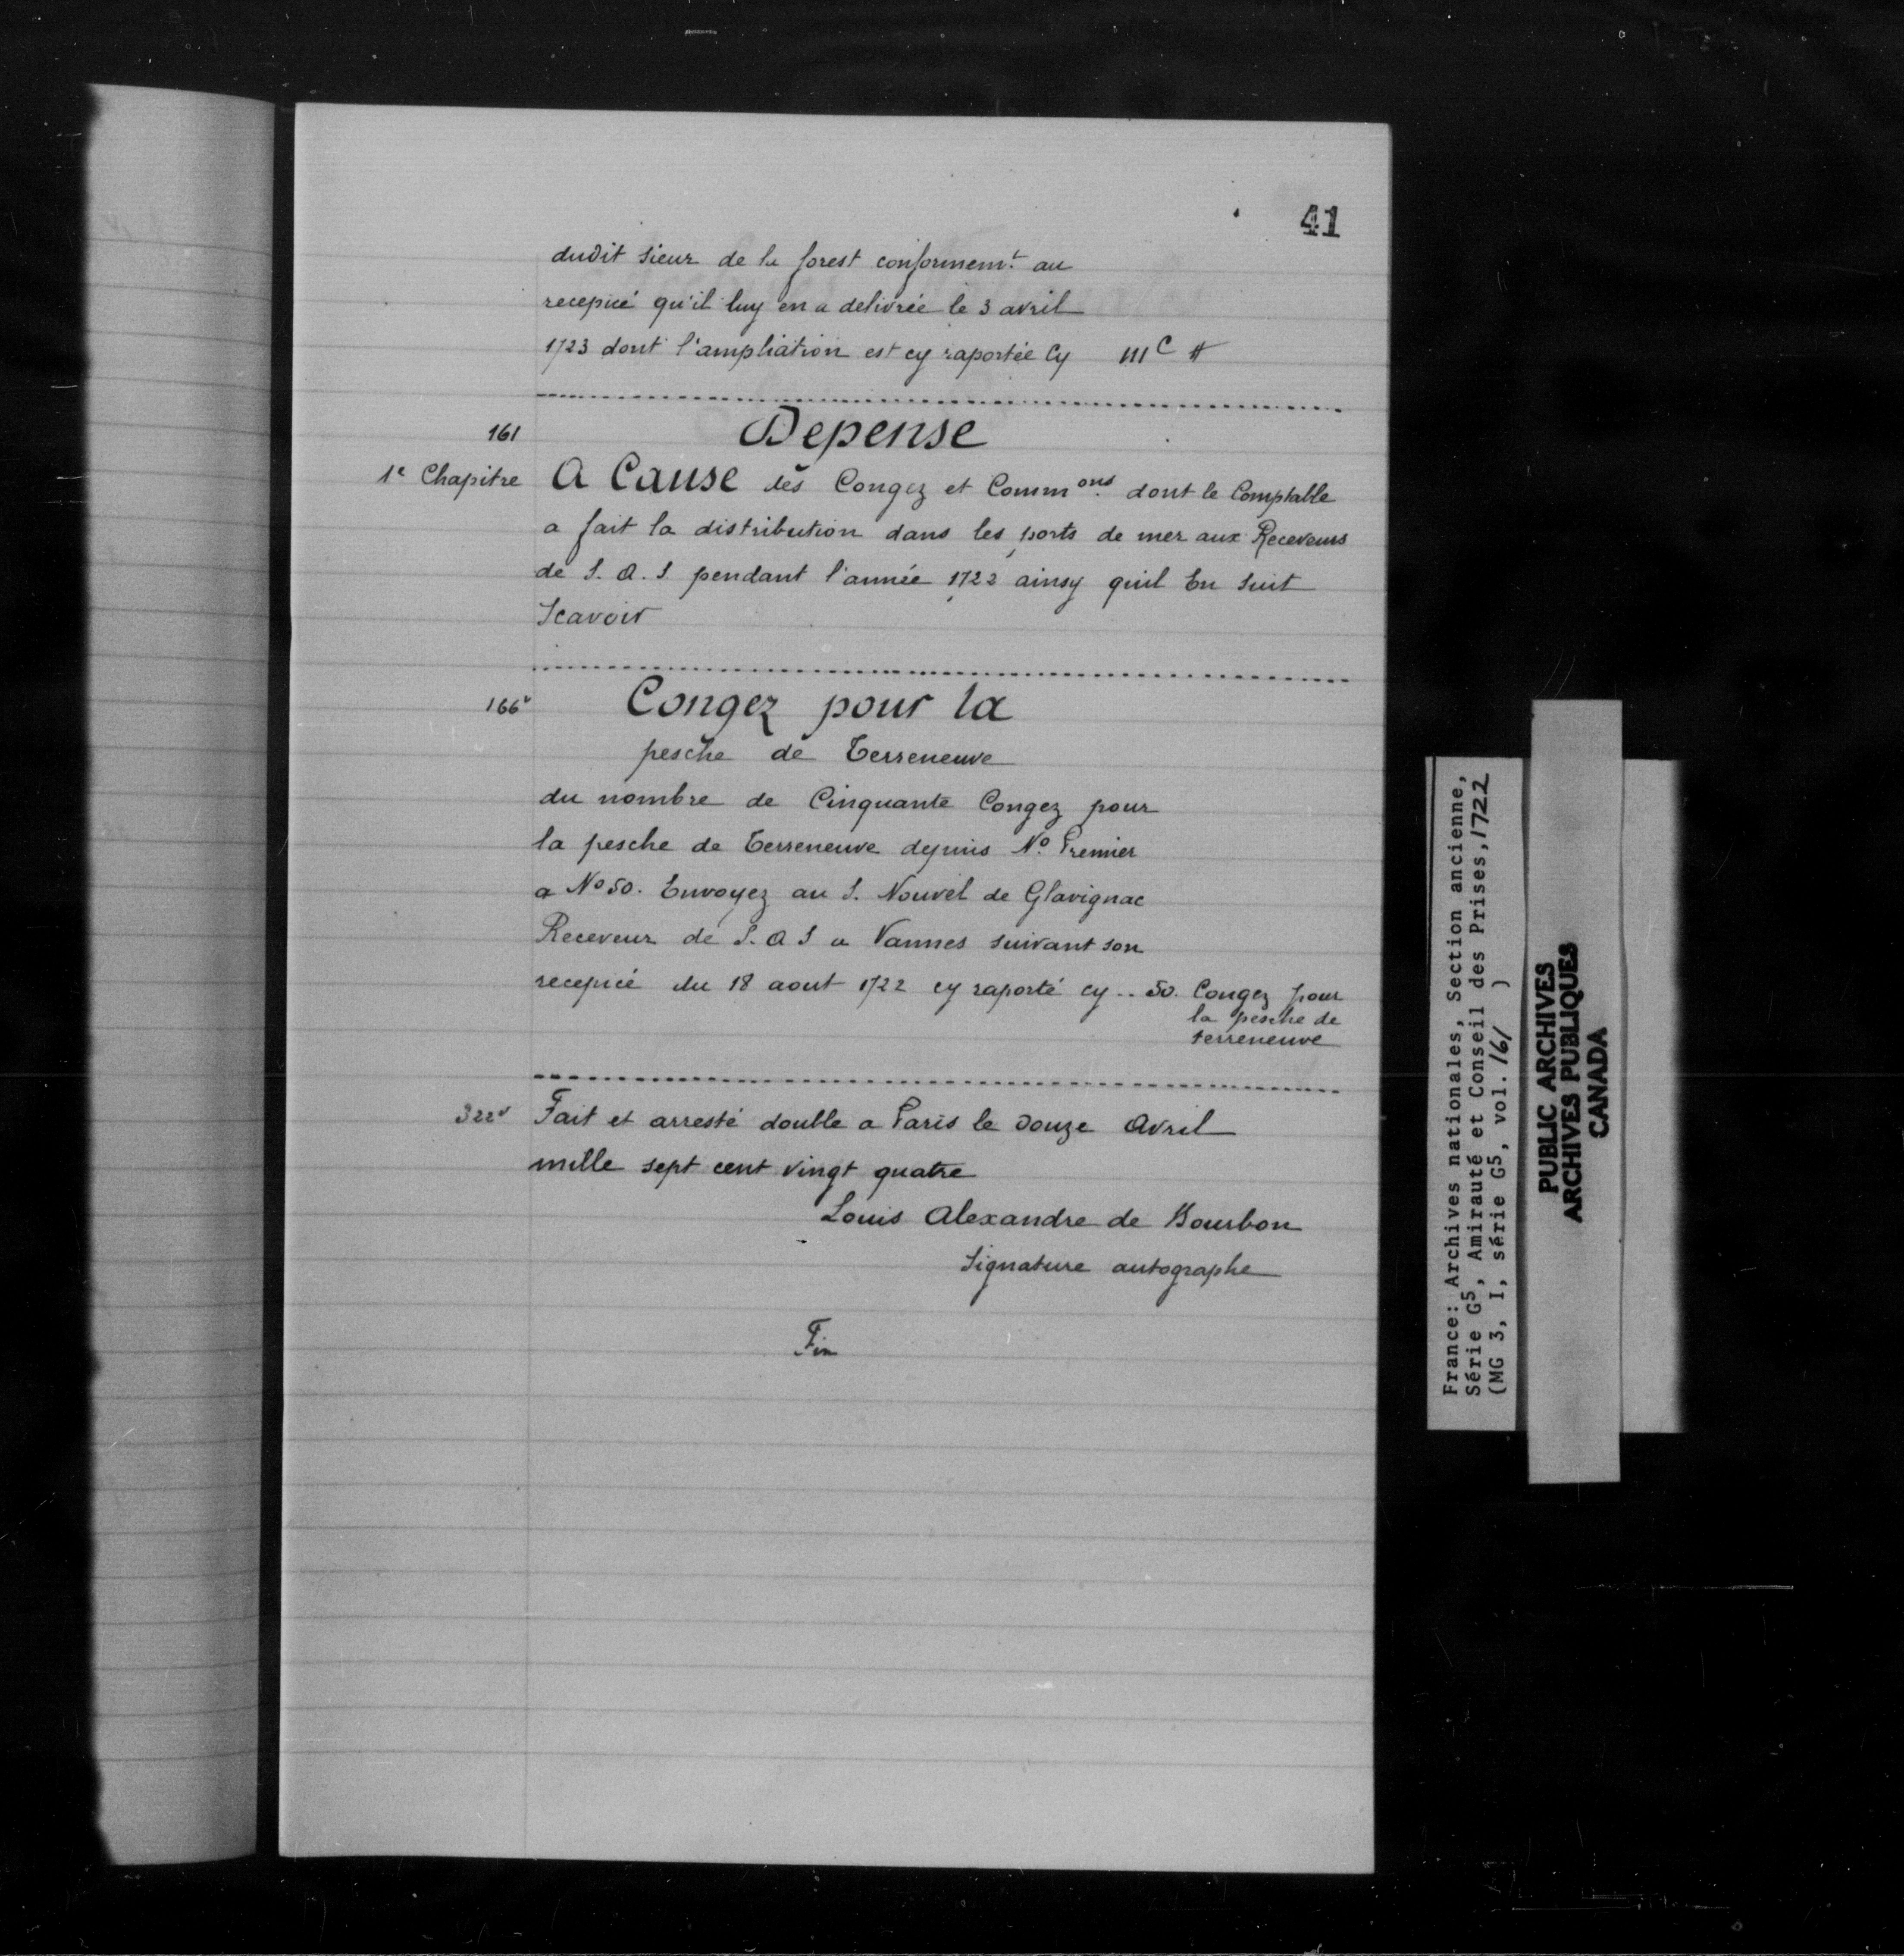 41
dudit sieur de la forest conformem.t au
recepicé qu'il luy en a delivrée le 3 avril
1723 dont l'ampliation est cy raportée Cy IIIC ₶
161
Depense
1e Chapitre
A Cause des Congez et Commons. dont le Comptable
a fait la distribution dans les ports de mer aux Receveurs
de S. A. S pendant l'année 1722 ainsy quil En suit
Scavoir
166v
Congez pour la
pesche de Terreneuve
du nombre de Cinquante Congez pour
la pesche de Terreneuve depuis No. Premier
a No 50. Envoyez au S. Nouvel de Glavignac
Receveur de S. A S a Vannes suivant son
recepicé du 18 aout 1722 cy raporté cy .. 50. Congez pour
la pesche de
terreneuve
322v
Fait et arresté double a Paris le douze Avril
mille sept cent vingt quatre
Louis Alexandre de Bourbon
Signature autographe
Fin
France: Archives nationales, Section ancienne,
Série G5, Amirauté et Conseil des Prises, 1722
(MG 3, I, série G5, vol. 161 )
PUBLIC ARCHIVES
ARCHIVES PUBLIQUES
CANADA